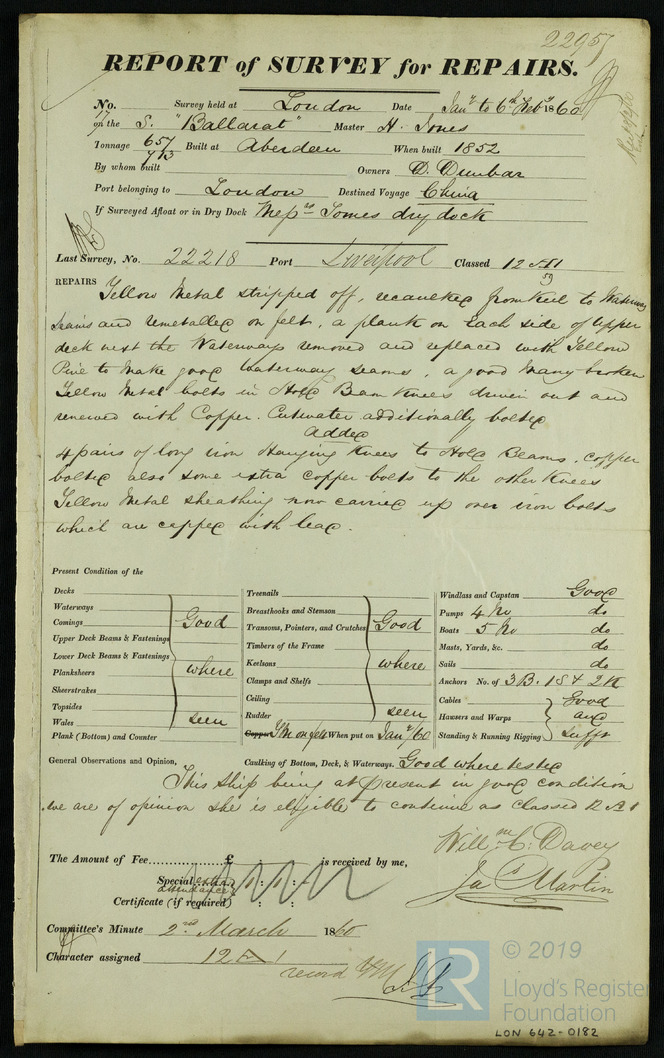 22957
REPORT of SURVEY for REPAIRS.
No. Survey held at London Date Jany to 6th Feby 1860
on the S. "Ballarat" Master H. Jones
Tonnage 657 Built at Aberdeen When built 1852
713
By whom built Owners D. Dunbar
Port belonging to London Destined Voyage China
If Surveyed Afloat or in Dry Dock Messrs Somes dry dock
Last Survey, No. 22218 Port Liverpool Classed 12 A1
59
REPAIRS Yellow Metal stripped off, recaulked from Keel to Waterway
seams and remetalled on felt, a plank on each side of upper
deck next the Waterways removed and replaced with Yellow
Pine to make good waterway seams, a good many broken
Yellow Metal bolts in Hold Beam Knees driven out and
renewed with Copper. Cutwater additionally bolted
added
4 pairs of long iron Hanging Knees to Hold Beams, copper
bolted also some extra copper bolts to the other Knees
Yellow Metal sheathing now carried up over iron bolts
which are capped with lead.
Present Condition of the
Decks
Waterways
Comings Good
Upper Deck Beams & Fastenings
Lower Deck Beams & Fastenings
Planksheers where
Sheerstrakes
Topsides
Wales seen
Plank (Bottom) and Counter
Treenails
Breasthooks and Stemson
Transoms, Pointers, and Crutches Good
Timbers of the Frame
Keelsons where
Clamps and Shelfs
Ceiling
Rudder seen
Copper YM on felt When put on Jany/60
Windlass and Capstan Good
Pumps 4 No do
Boats 5 No do
Masts, Yards, &c. do
Sails do
Anchors No. of 3B. 1S & 2K
Cables Good
Hawsers and Warps and
Standing & Running Rigging Sufft
General Observations and Opinion, Caulking of Bottom, Deck, & Waterways. Good where tested
This Ship being at present in good condition
we are of opinion she is eligible to continue as classed 12 A1
Willm C. Davey
Jas Martin
The Amount of Fee............£ is received by me,
Special extra
attendance
Certificate (if required)
Committee's Minute 2nd March 1860
Character assigned 12 A1
record YM
© 2019
LR
Lloyd's Register
Foundation
LON 642-0182